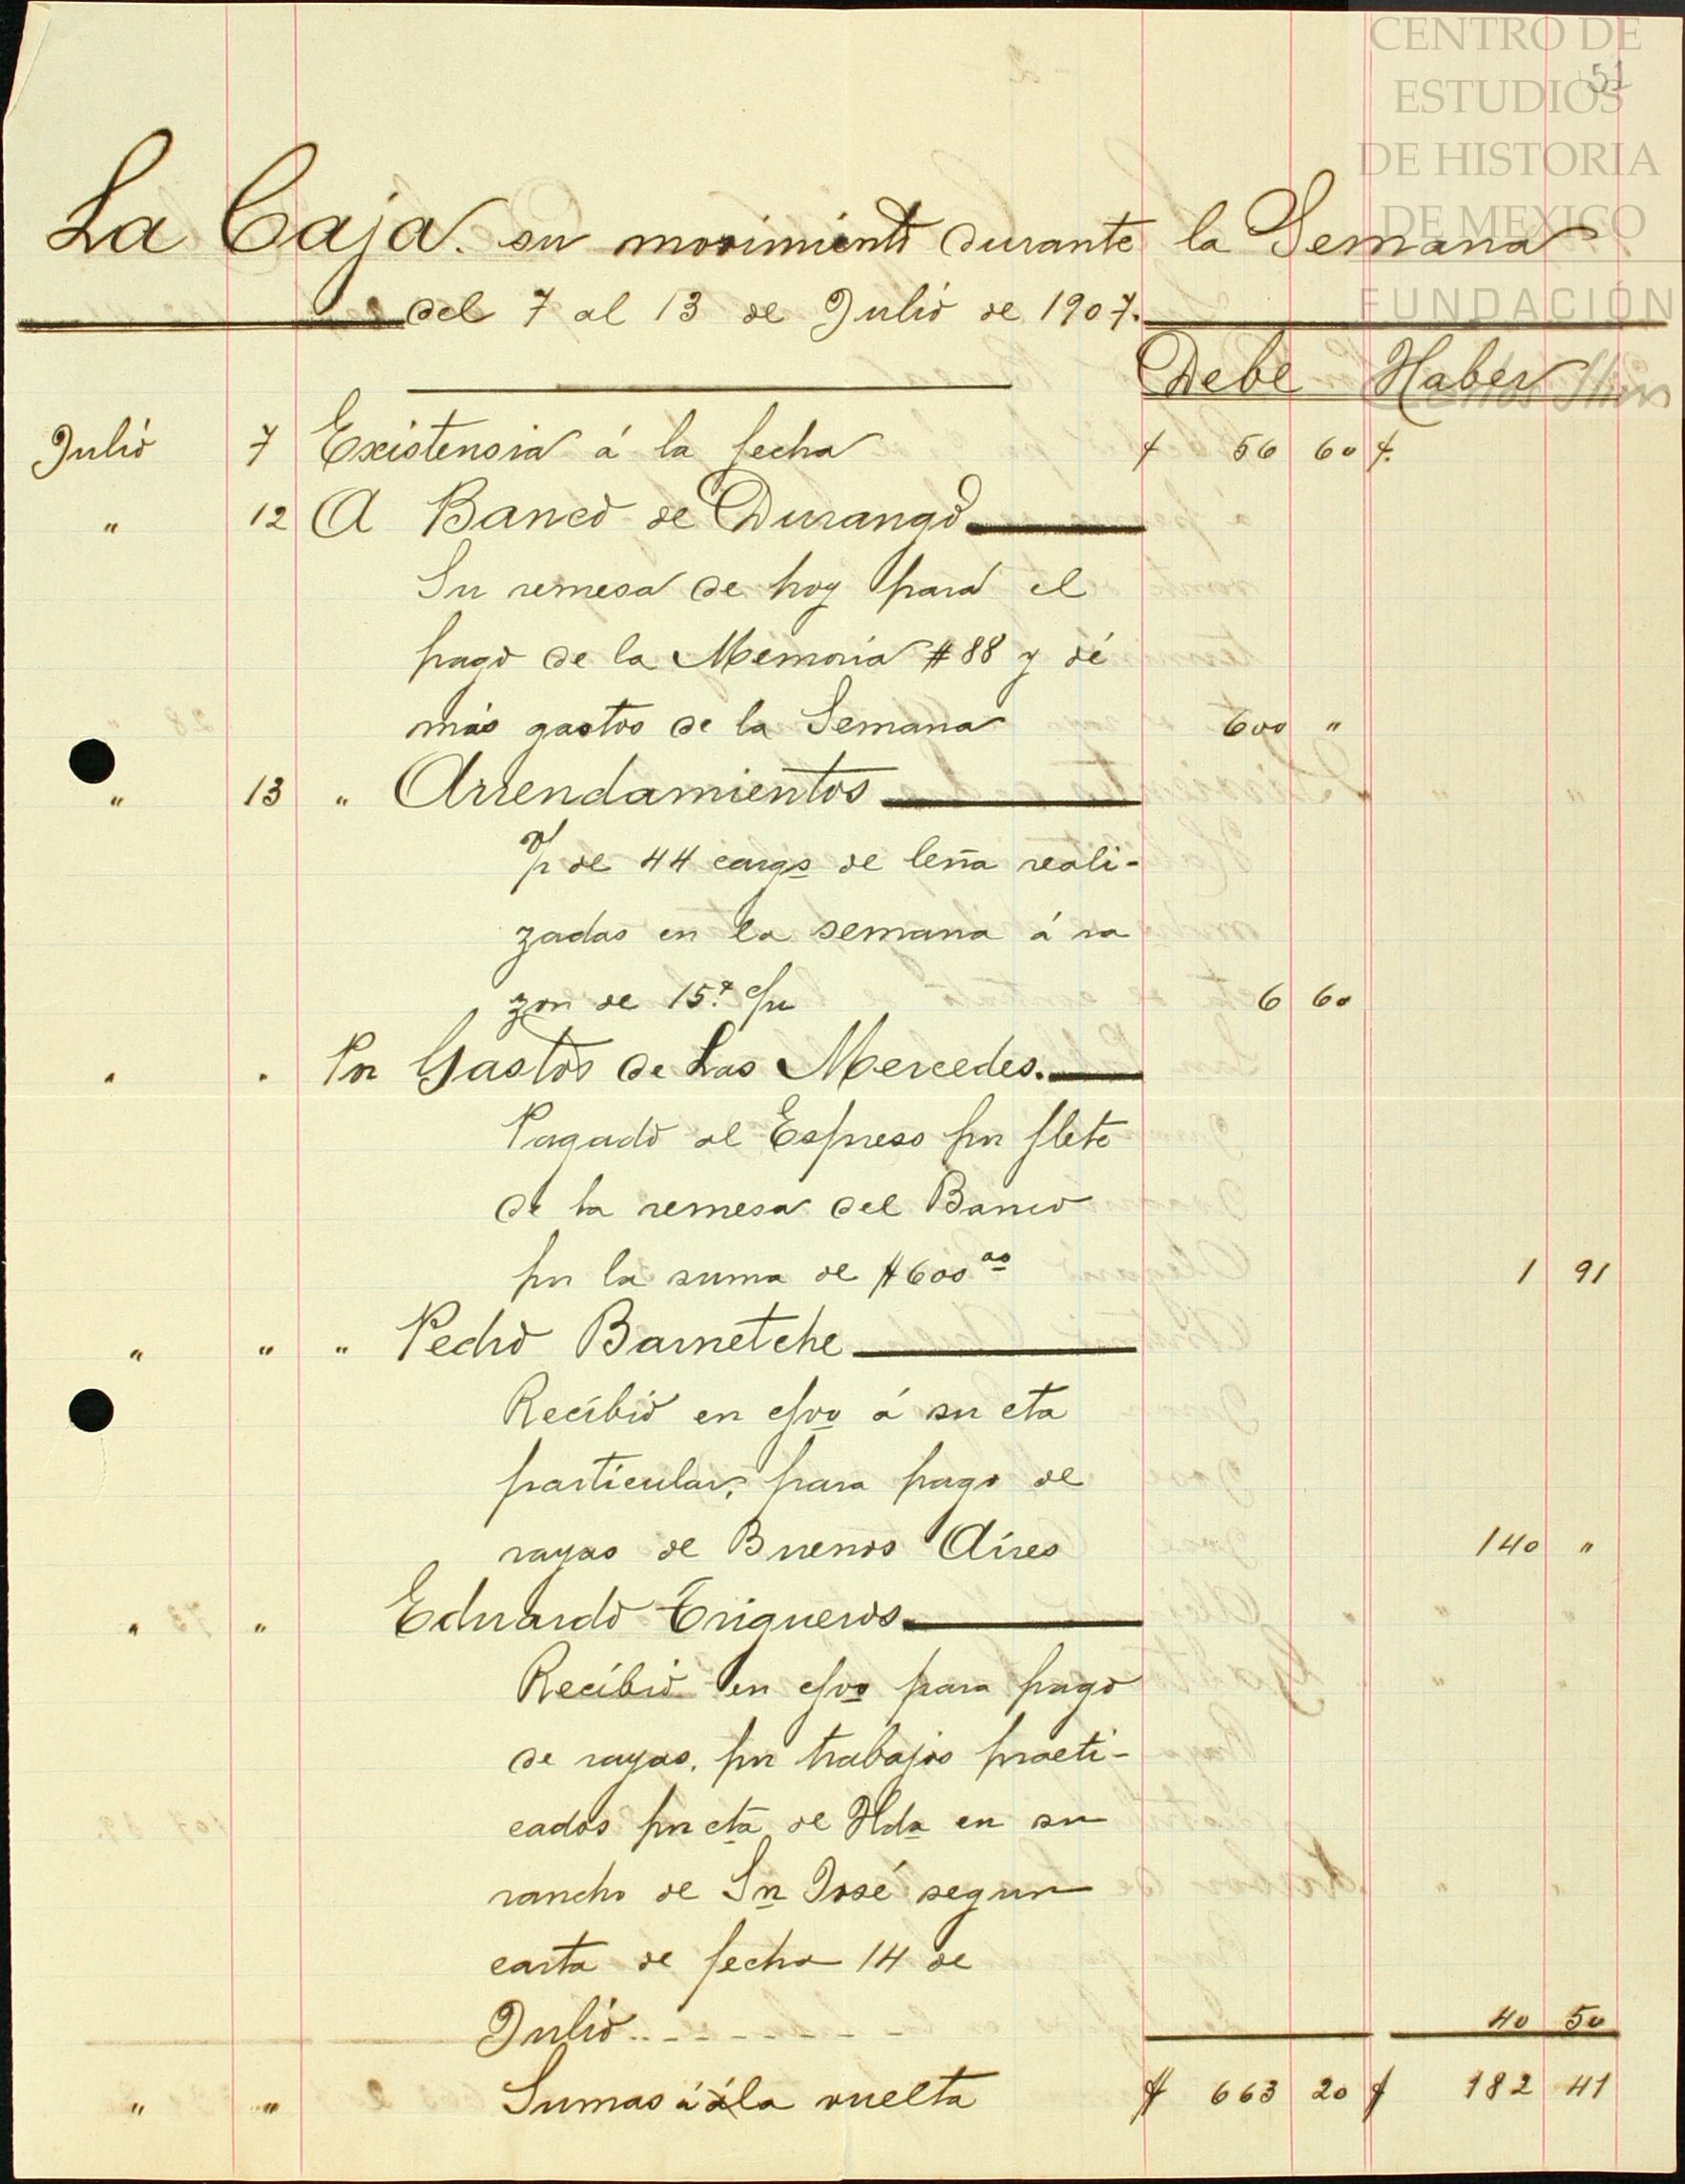 CENTRO DE
ESTUDIOS
51
DE HISTORIA
DE MEXICO
FUNDACIÓN
La Caja. su movimiento durante la Semana
del 7 al 13 de Julio de 1907.
Debe Haber
Julio 7 Existensia á la fecha $ 56 60 $
" 12 A Banco de Durango
Su remesa de hoy para el
pago de la Memoria #88 y dé
más gastos de la Semana 600 "
" 13 " Arrendamientos
de 44 cargs de leña reali-
zadas en la semana á ra
zon de 15¢ c/u 6 60
" " Por Gastos de Las Mercedes.
Pagado al Espreso por flete
de la remesa del Banco
por la suma de $600 oo 1 91
" " " Pedro Barnetche
Recíbió en efvo á su cta
particular, para pago de
rayas de Buenos Aires 140 "
" " Eduardo Trigueros
Recíbió en efvo para pago
de rayas, por trabajos practi-
cados por cta de Hda en su
rancho de Sn José segun
carta de fecha 14 de
Julio..-------- 40 50
" " Sumas á á la vuelta $ 663 20 $ 182 41